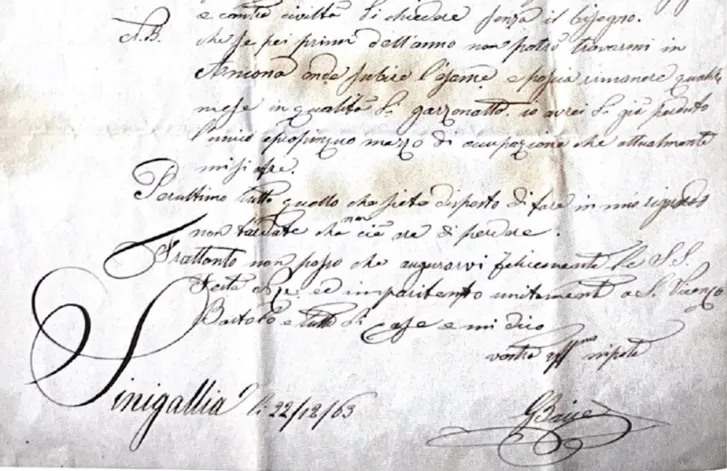 e contro civiltà di chiedere senza il bisogno.
N.B. che se pei primi dell'anno non potrò trovarmi in
Ancona onde subire l'esame, e possia rimanere qualche
mese in qualità di garzonotto, io avrei di già perduto
l'unico e propinquo mezzo di occupazione che attualmente
mi si offre.
Per ultimo tutto quello che siete disposto di fare in mio riguardo
non tardate che non c'è ore di perdere.
Frattanto non posso che augurarvi felicemente le S.S.
Feste unitamente a
Bartolo e tutti di casa e mi dico
vostro nipote
Sinigallia li 22/12/63